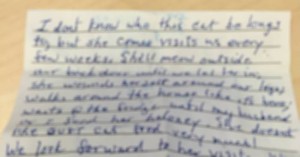 I don't know who this cat belongs
to, but she comes visits us every
few weeks. She'll meow outside
our back door until we let her in,
she wounds herself around our legs
walks around the house like it's hers,
waits @ the fridge until my husband
her balogney. She doesn't
like cat food very much!
We look forward to her visits